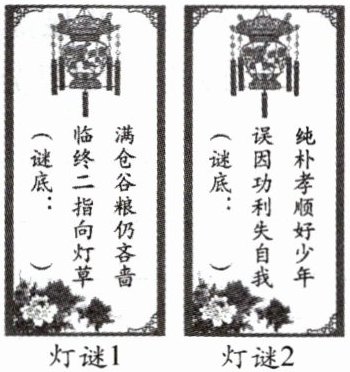 满仓谷粮仍吝啬
临终二指向灯草
（谜底：　　）
灯谜1
纯朴孝顺好少年
误因功利失自我
（谜底：　　）
灯谜2